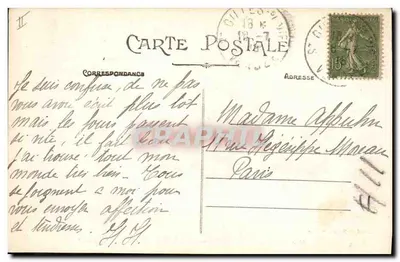 II
ST GILLES
18
18-7
CARTE POSTALE
CORRESPONDANCE
ADRESSE
15c
Je suis confuse, de ne pas
vous avoir écrit plus tôt
mais les jours passent
si vite, et fait
j'ai trouvé tout mon
monde très bien. Tous
se joignent à moi pour
vous envoyer affection
et tendresses.
Madame Appuhn
11 rue Hégésippe Moreau
Paris